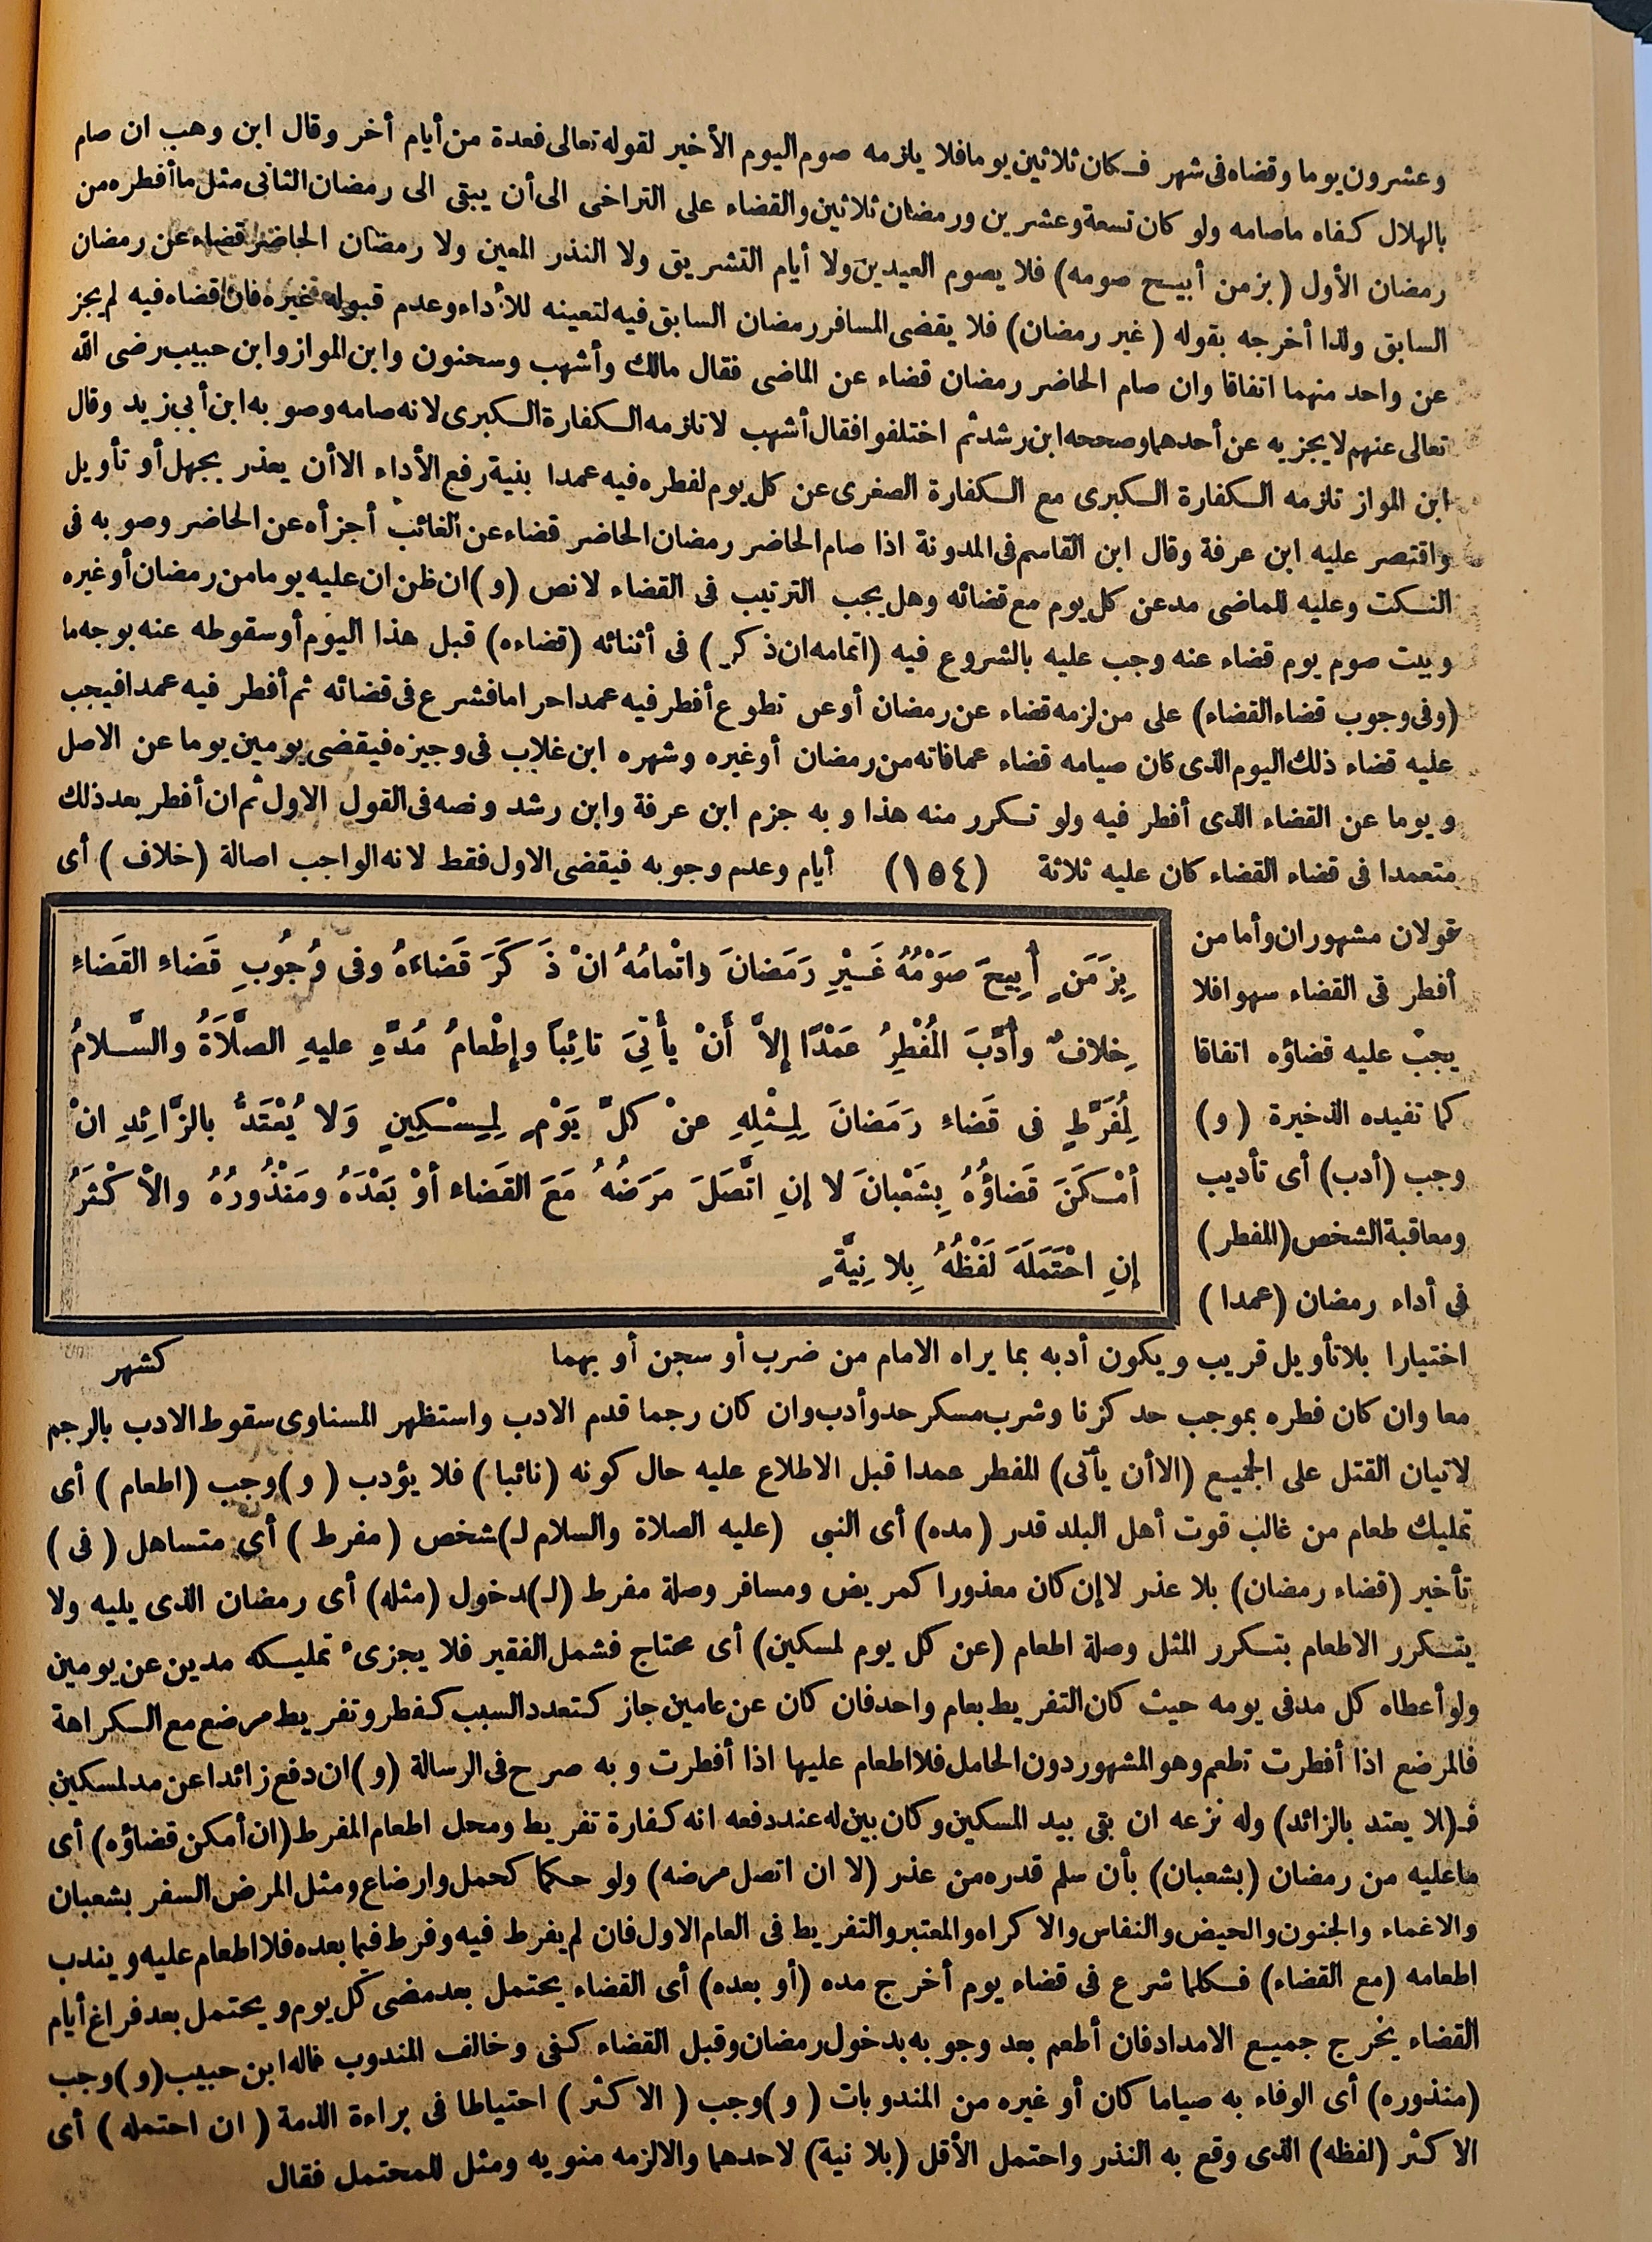 وعشرون يوما وقضاه فى شهر فكان ثلاثين يوما فلا يلزمه صوم اليوم الأخير لقوله تعالى فعدة من أيام أخر وقال ابن وهب ان صام
بالهلال كفاه ماصامه ولو كان تسعة وعشرين ورمضان ثلاثين والقضاء على التراخى الى أن يبقى الى رمضان الثانى مثل ما أفطره من
رمضان الأول (بزمن أبيح صومه) فلا يصوم العيدين ولا أيام التشريق ولا النذر المعين ولا رمضان الحاضر قضاء عن رمضان
السابق ولذا أخرجه بقوله (غير رمضان) فلا يقضى المسافر رمضان السابق فيه لتعينه للأداء وعدم قبوله غيره فان قضاه فيه لم يجز
عن واحد منهما اتفاقا وان صام الحاضر رمضان قضاء عن الماضى فقال مالك وأشهب وسحنون وابن المواز وابن حبيب رضى الله
تعالى عنهم لا يجزيه عن أحدهما وصححه ابن رشد ثم اختلفوا فقال أشهب لا تلزمه الكفارة الكبرى لانه صامه وصوبه ابن أبي زيد وقال
ابن المواز تلزمه الكفارة الكبرى مع الكفارة الصغرى عن كل يوم لفطره فيه عمدا بنية رفع الأداء الا أن يعذر بجهل أو تأويل
واقتصر عليه ابن عرفة وقال ابن القاسم فى المدونة اذا صام الحاضر رمضان الحاضر قضاء عن الغائب أجزأه عن الحاضر وصوبه فى
النكت وعليه للماضى مد عن كل يوم مع قضائه وهل يجب الترتيب فى القضاء لا نص (و) ان ظن ان عليه يوما من رمضان أو غيره
وبيت صوم يوم قضاء عنه وجب عليه بالشروع فيه (اتمامه ان ذكر) فى أثنائه (قضاءه) قبل هذا اليوم أو سقوطه عنه بوجه ما
(وفى وجوب قضاء القضاء) على من لزمه قضاء عن رمضان أو عن تطوع أفطر فيه عمدا حراما فشرع فى قضائه ثم أفطر فيه عمدا فيجب
عليه قضاء ذلك اليوم الذى كان صيامه قضاء عما فاته من رمضان أو غيره وشهره ابن غلاب فى وجيزه فيقضى يومين يوما عن الاصل
ويوما عن القضاء الذى أفطر فيه ولو تكرر منه هذا وبه جزم ابن عرفة وابن رشد ونصه فى القول الاول ثم ان أفطر بعد ذلك
متعمدا فى قضاء القضاء كان عليه ثلاثة (١٥٤) أيام وعدم وجوبه فيقضى الاول فقط لانه الواجب اصالة (خلاف) أى
قولان مشهوران وأما من
أفطر فى القضاء سهوا فلا
يجب عليه قضاؤه اتفاقا
كما تفيده الذخيرة (و)
وجب (أدب) أى تأديب
ومعاقبة الشخص (المفطر)
فى أداء رمضان (عمدا)
بِزَمَنٍ أُبِيحَ صَوْمُهُ غَيْرِ رَمَضانَ واتْمامُهُ انْ ذَكَرَ قَضاءَهُ وفى وُجُوبِ قَضاءِ القَضاءِ
خِلافٌ وأُدِّبَ المُفْطِرُ عَمْدًا إلاَّ أَنْ يأتِىَ تائِبًا وإطْعامُ مُدِّهِ عليهِ الصَّلاَةُ والسَّلامُ
لِمُفَرِّطٍ فى قَضاءِ رَمَضانَ لِمِثْلِهِ عنْ كلِّ يَوْمٍ لِمِسْكِينٍ وَلا يُعْتَدُّ بالزَّائِدِ انْ
أمْكَنَ قَضاؤُهُ بِشَعْبانَ لا إنِ اتَّصَلَ مَرَضُهُ مَعَ القَضاء أوْ بَعْدَهُ ومَنْذُورُهُ والأكْثَرُ
إنِ احْتَمَلَهَ لَفْظُهُ بِلا نِيَّةٍ
اختيارا بلا تأويل قريب ويكون أدبه بما يراه الامام من ضرب أو سجن أو بهما كشهر
معا وان كان فطره بموجب حد كزنا وشرب مسكر حد وأدب وان كان رجما قدم الادب واستظهر المسناوى سقوط الادب بالرجم
لاتيان القتل على الجميع (الا أن يأتى) المفطر عمدا قبل الاطلاع عليه حال كونه (تائبا) فلا يؤدب (و) وجب (اطعام) أى
تمليك طعام من غالب قوت أهل البلد قدر (مده) أى النبى (عليه الصلاة والسلام لـ) شخص (مفرط) أى متساهل (فى)
تأخير (قضاء رمضان) بلا عذر لا إن كان معذورا كمريض ومسافر وصلة مفرط (لـ) دخول (مثله) أى رمضان الذى يليه ولا
يتكرر الاطعام بتكرر المثل وصلة اطعام (عن كل يوم لمسكين) أى محتاج فشمل الفقير فلا يجزىء تمليكه مدين عن يومين
ولو أعطاه كل مد فى يومه حيث كان التفريط بعام واحد فان كان عن عامين جاز كتعدد السبب كفطر وتفريط مرضع مع الكراهة
فالمرضع اذا أفطرت تطعم وهو المشهور دون الحامل فلا اطعام عليها اذا أفطرت وبه صرح فى الرسالة (و) ان دفع زائدا عن مد لمسكين
فـ(لا يعتد بالزائد) وله نزعه ان بقى بيد المسكين وكان بين له عند دفعه انه كفارة تفريط ومحل اطعام المفرط (ان أمكن قضاؤه) أى
ما عليه من رمضان (بشعبان) بأن سلم قدره من عذر (لا ان اتصل مرضه) ولو حكما كحمل وارضاع ومثل المرض السفر بشعبان
والاغماء والجنون والحيض والنفاس والاكراه والمعتبر والتفريط فى العام الاول فان لم يفرط فيه وفرط فيما بعده فلا اطعام عليه ويندب
اطعامه (مع القضاء) فكلما شرع فى قضاء يوم أخرج مده (أو بعده) أى القضاء يحتمل بعد مضى كل يوم ويحتمل بعد فراغ أيام
القضاء يخرج جميع الامداد فان أطعم بعد وجوبه بدخول رمضان وقبل القضاء كفى وخالف المندوب قاله ابن حبيب (و) وجب
(منذوره) أى الوفاء به صياما كان أو غيره من المندوبات (و) وجب (الاكثر) احتياطا فى براءة الذمة (ان احتمله) أى
الاكثر (لفظه) الذى وقع به النذر واحتمل الأقل (بلا نية) لاحدهما والا لزمه منويه ومثل للمحتمل فقال